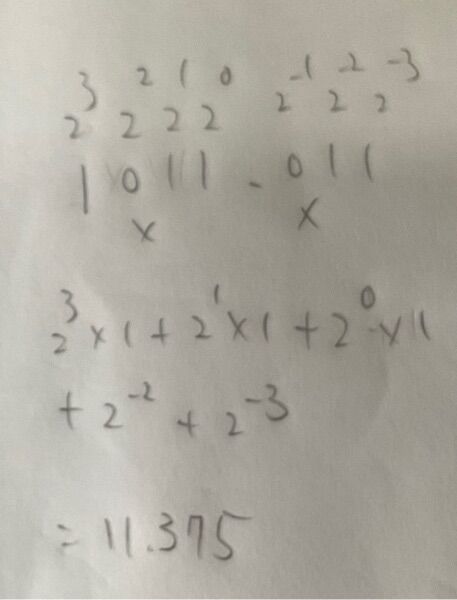 2³ 2² 2¹ 2⁰ 2⁻¹ 2⁻² 2⁻³
1 0 1 1 . 0 1 1
x x
2³ x 1 + 2¹ x 1 + 2⁰ x 1
+ 2⁻² + 2⁻³
= 11.375